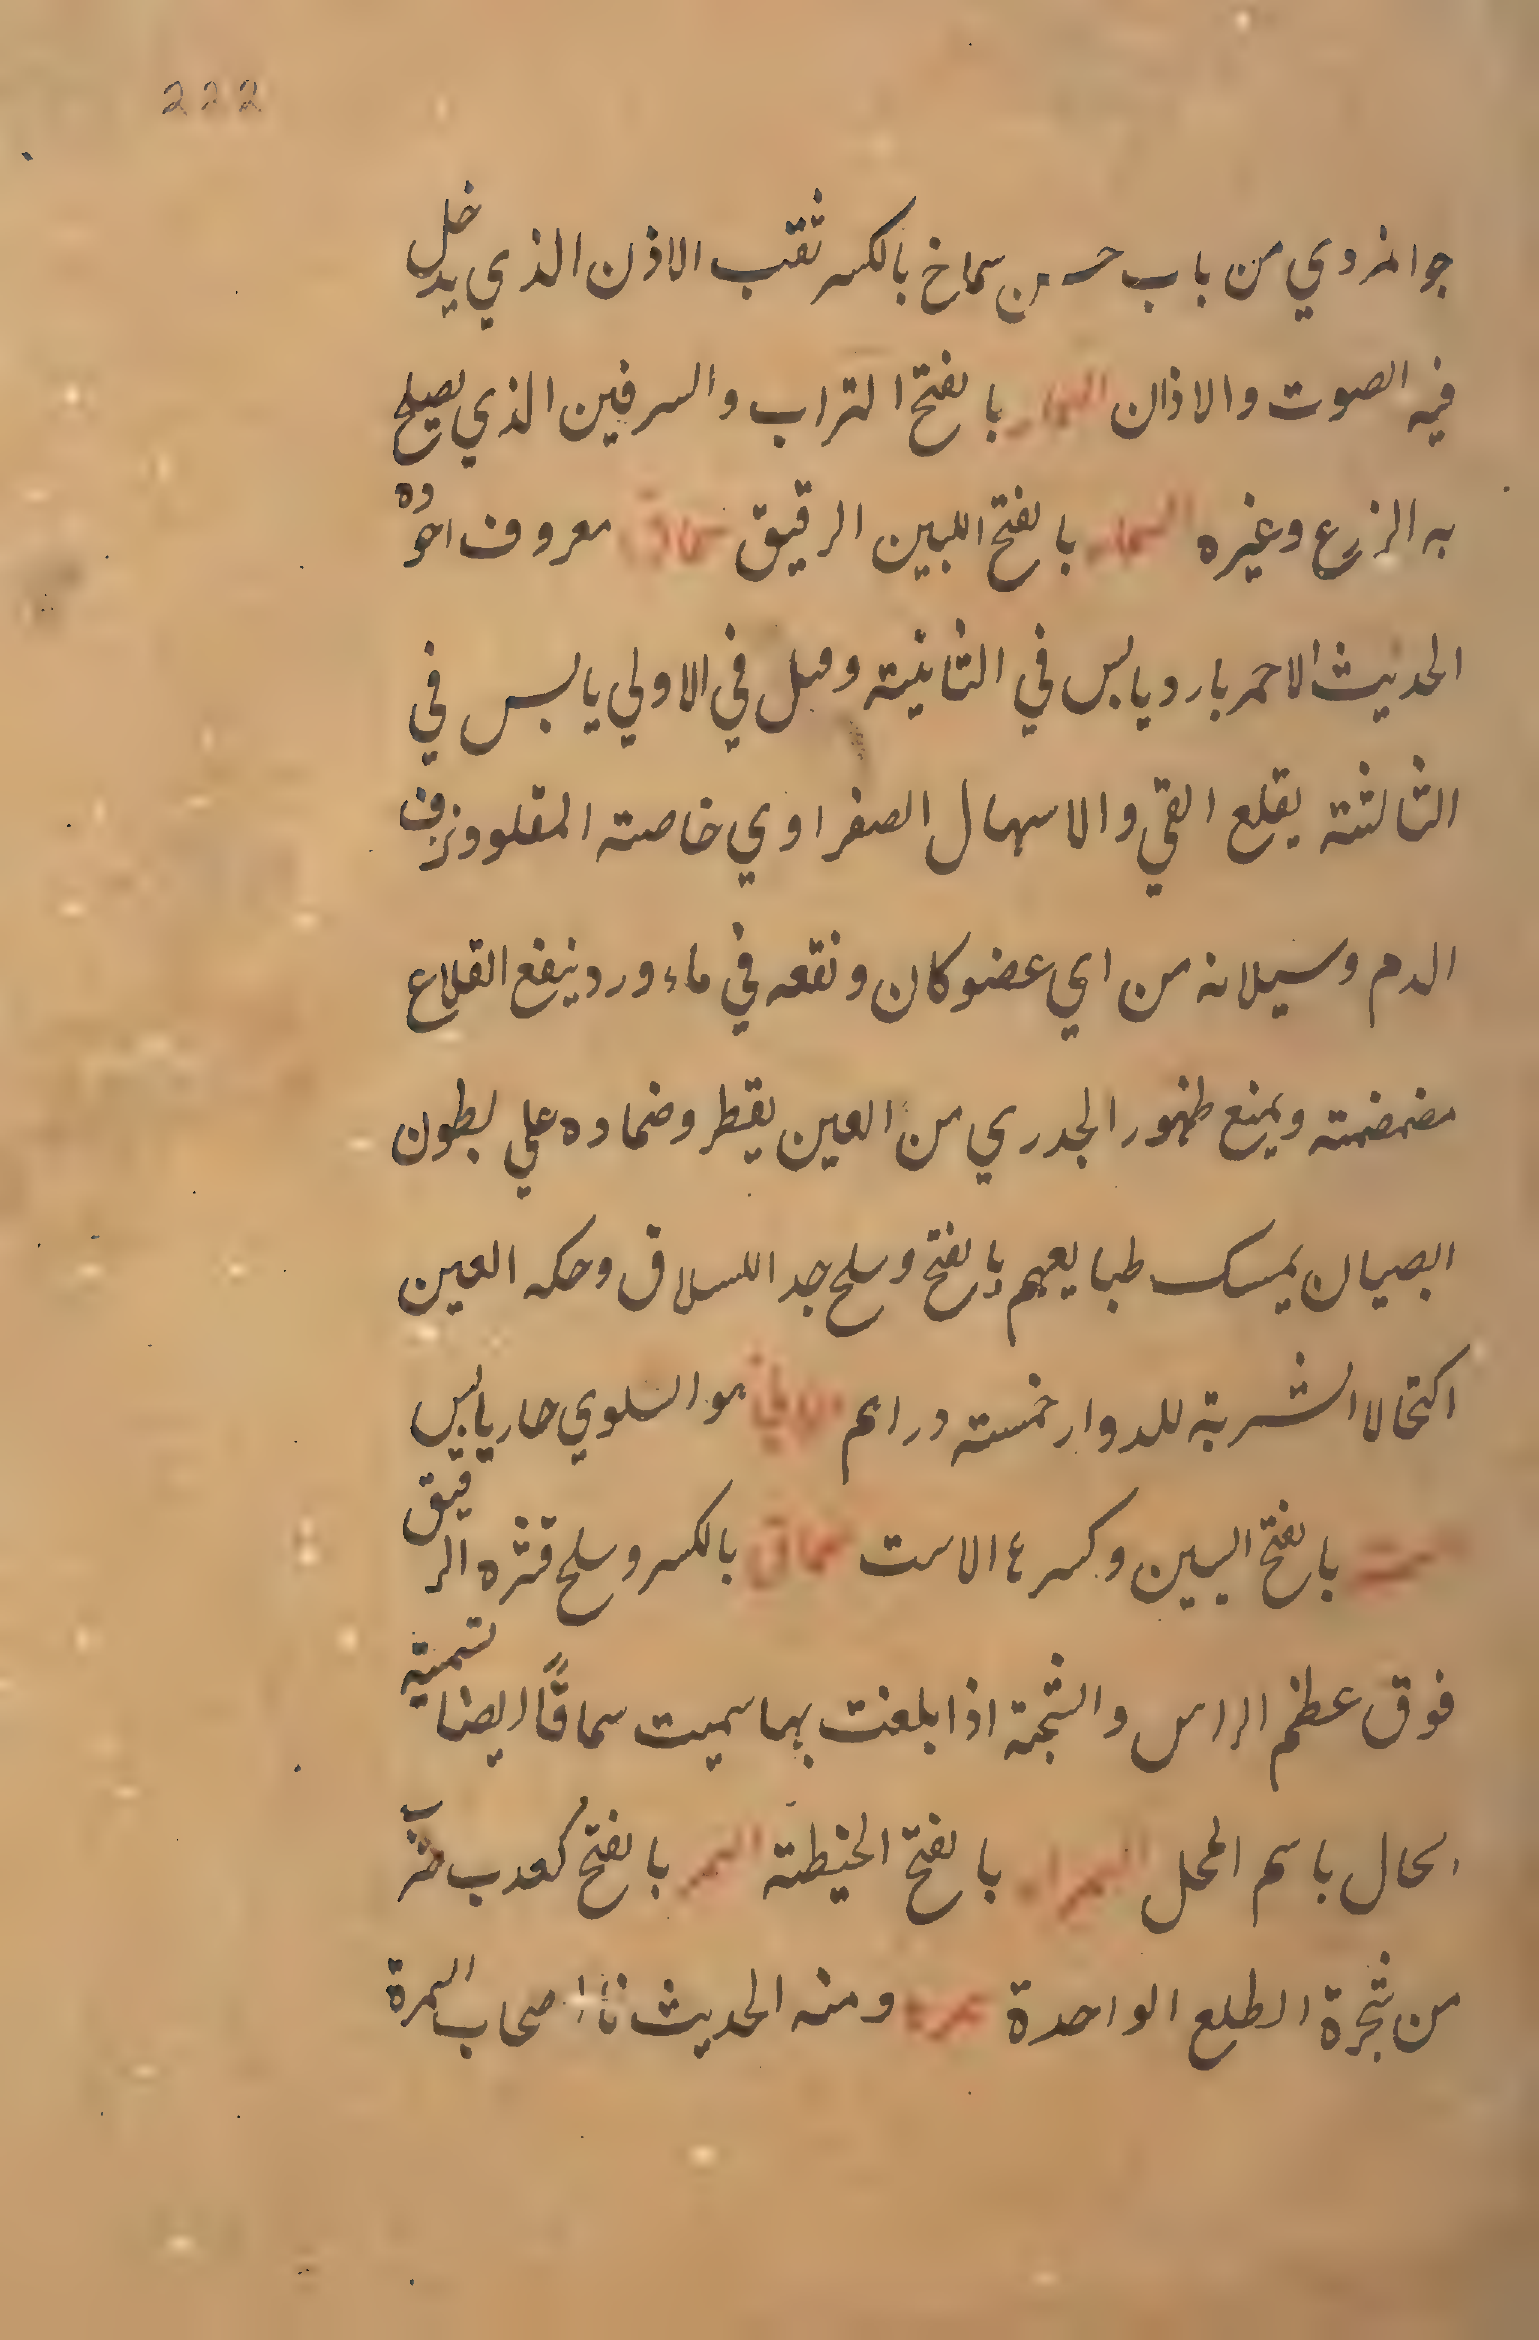 222
جوانمردي من باب حسن سماخ بالكسر ثقب الاذن الذي يدخل
فيه الصوت والاذان السماد بالفتح التراب والسرقين الذي يصلح
به الزرع وغيره السمار بالفتح اللبين الرقيق سماق معروف اجوده
الحديث الاحمر بارد يابس في الثانية وقيل في الاولي يابس في
الثالثة يقلع القي والاسهال الصفراوي خاصته المقلو ونزف
الدم وسيلانه من اي عضو كان ونقعه في ماء ورد ينفع القلاع
مضمضته ويمنع ظهور الجدري من العين يقطر وضماده علي بطون
الصبيان يمسك طبايعهم بالفتح وسلح جد اللسلاق وحكه العين
اكتحالا الشربة للدوار خمسته دراهم سماني هو السلوي حار يابس
سمت بالفتح السين وكسرها الاست سماق بالكسر وسلح قشره الرقيق
فوق عظم الراس والشجة اذا بلغت بها سميت سماقًا ايضا تسميته
لحال باسم المحل السمراء بالفتح الحنيطته السمر بالفتح كعدب ضرب
من شجرة الطلع الواحدة سمرة ومنه الحديث نا اصحاب السمرة